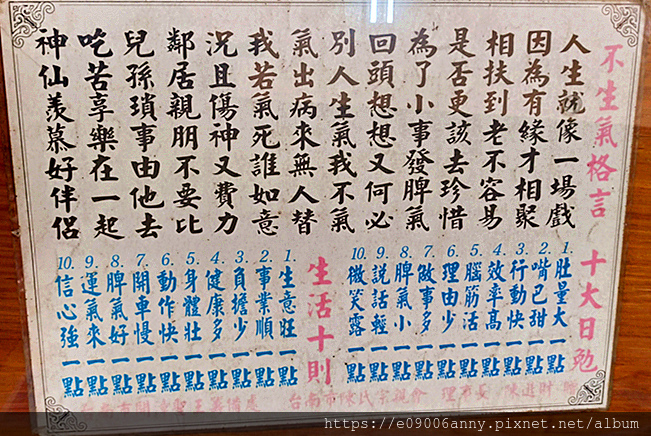 不生氣格言
人生就像一場戲
因為有緣才相聚
相扶到老不容易
是否更該去珍惜
為了小事發脾氣
回頭想想又何必
別人生氣我不氣
氣出病來無人替
我若氣死誰如意
況且傷神又費力
鄰居親朋不要比
兒孫瑣事由他去
吃苦享樂在一起
神仙羨慕好伴侶
十大日勉
1.肚量大一點
2.嘴巴甜一點
3.行動快一點
4.效率高一點
5.腦筋活一點
6.理由少一點
7.做事多一點
8.脾氣小一點
9.說話輕一點
10.微笑露一點
生活十則
1.生意旺一點
2.事業順一點
3.負擔少一點
4.健康多一點
5.身體壯一點
6.動作快一點
7.開車慢一點
8.脾氣好一點
9.運氣來一點
10.信心強一點
台南市陳氏宗親會 理事長 陳進財
https://e09006anny.pixnet.net/album